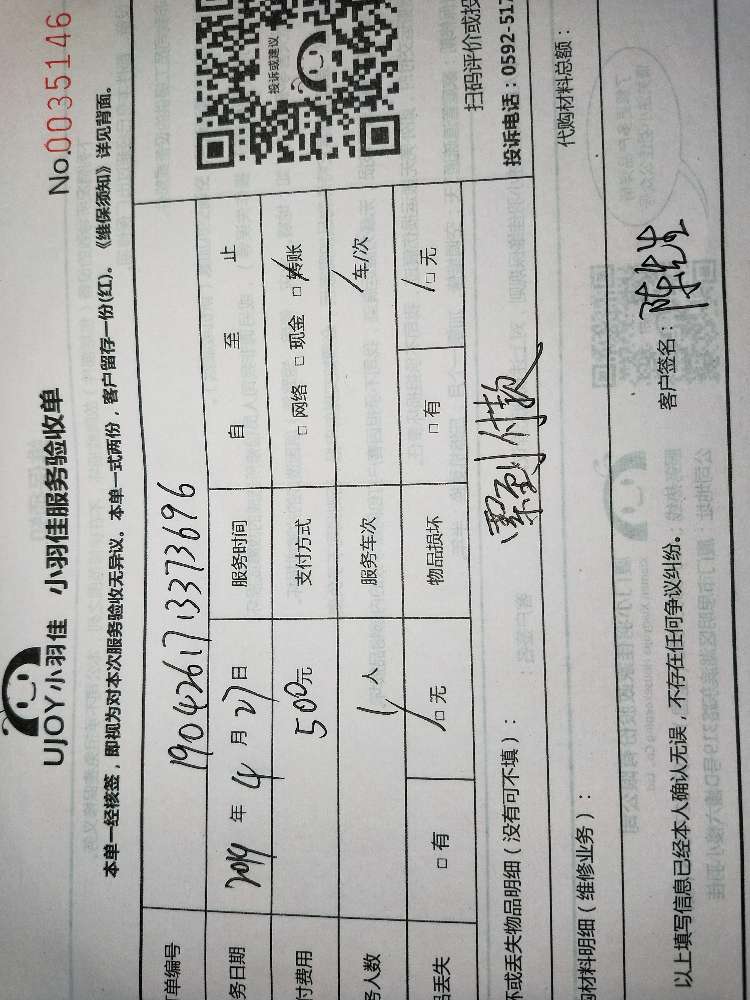 UJOY小羽佳 小羽佳服务验收单
No.0035146
本单一经核签，即视为对本次服务验收无异议。本单一式两份，客户留存一份(红)。《维保须知》详见背面。
单编号 190426171 3373696
务日期 2019 年 4 月 27 日 服务时间 自 至 止
付费用 500元 支付方式 □ 网络 □ 现金 □ 转账
务人数 1 人 服务车次 / 车/次
品丢失 □ 有 □ 无 物品损坏 □ 有 □ 无
投诉或建议
扫码评价或投
投诉电话：0592-517
坏或丢失物品明细（没有可不填）： 票到付款
购材料明细（维修业务）： 代购材料总额：
以上填写信息已经本人确认无误，不存在任何争议纠纷。 客户签名： 陈先生